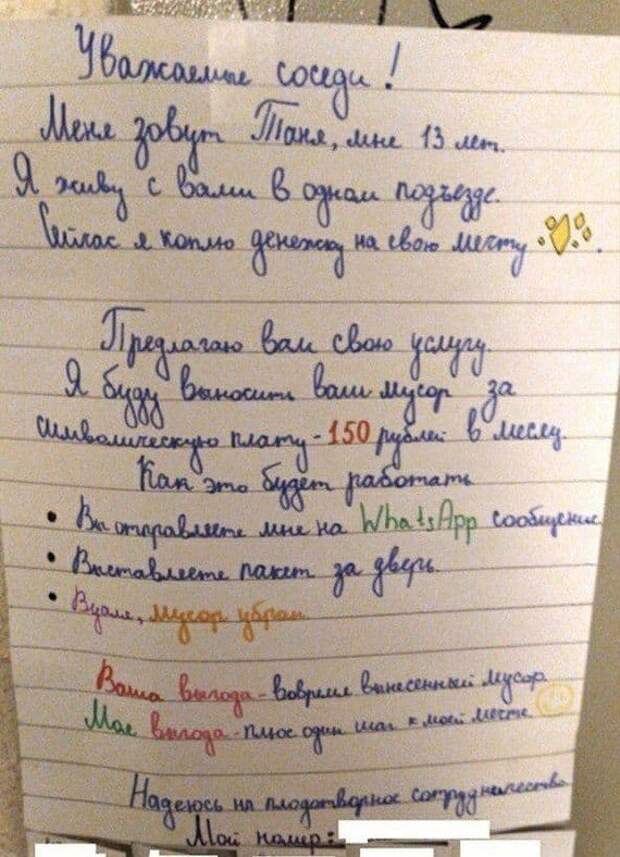 Уважаемые соседи!
Меня зовут Таня, мне 13 лет.
Я живу с вами в одном подъезде.
Сейчас я коплю денежку на свою мечту.
Предлагаю вам свою услугу.
Я буду выносить ваш мусор за
символическую плату - 150 рублей в месяц.
Как это будет работать
• Вы отправляете мне на WhatsApp сообщение
• Выставляете пакет за дверь.
• Вуаля, мусор убран
Ваша выгода - вовремя вынесенный мусор
Моя выгода - плюс один шаг к моей мечте
Надеюсь на плодотворное сотрудничество
Мой номер: